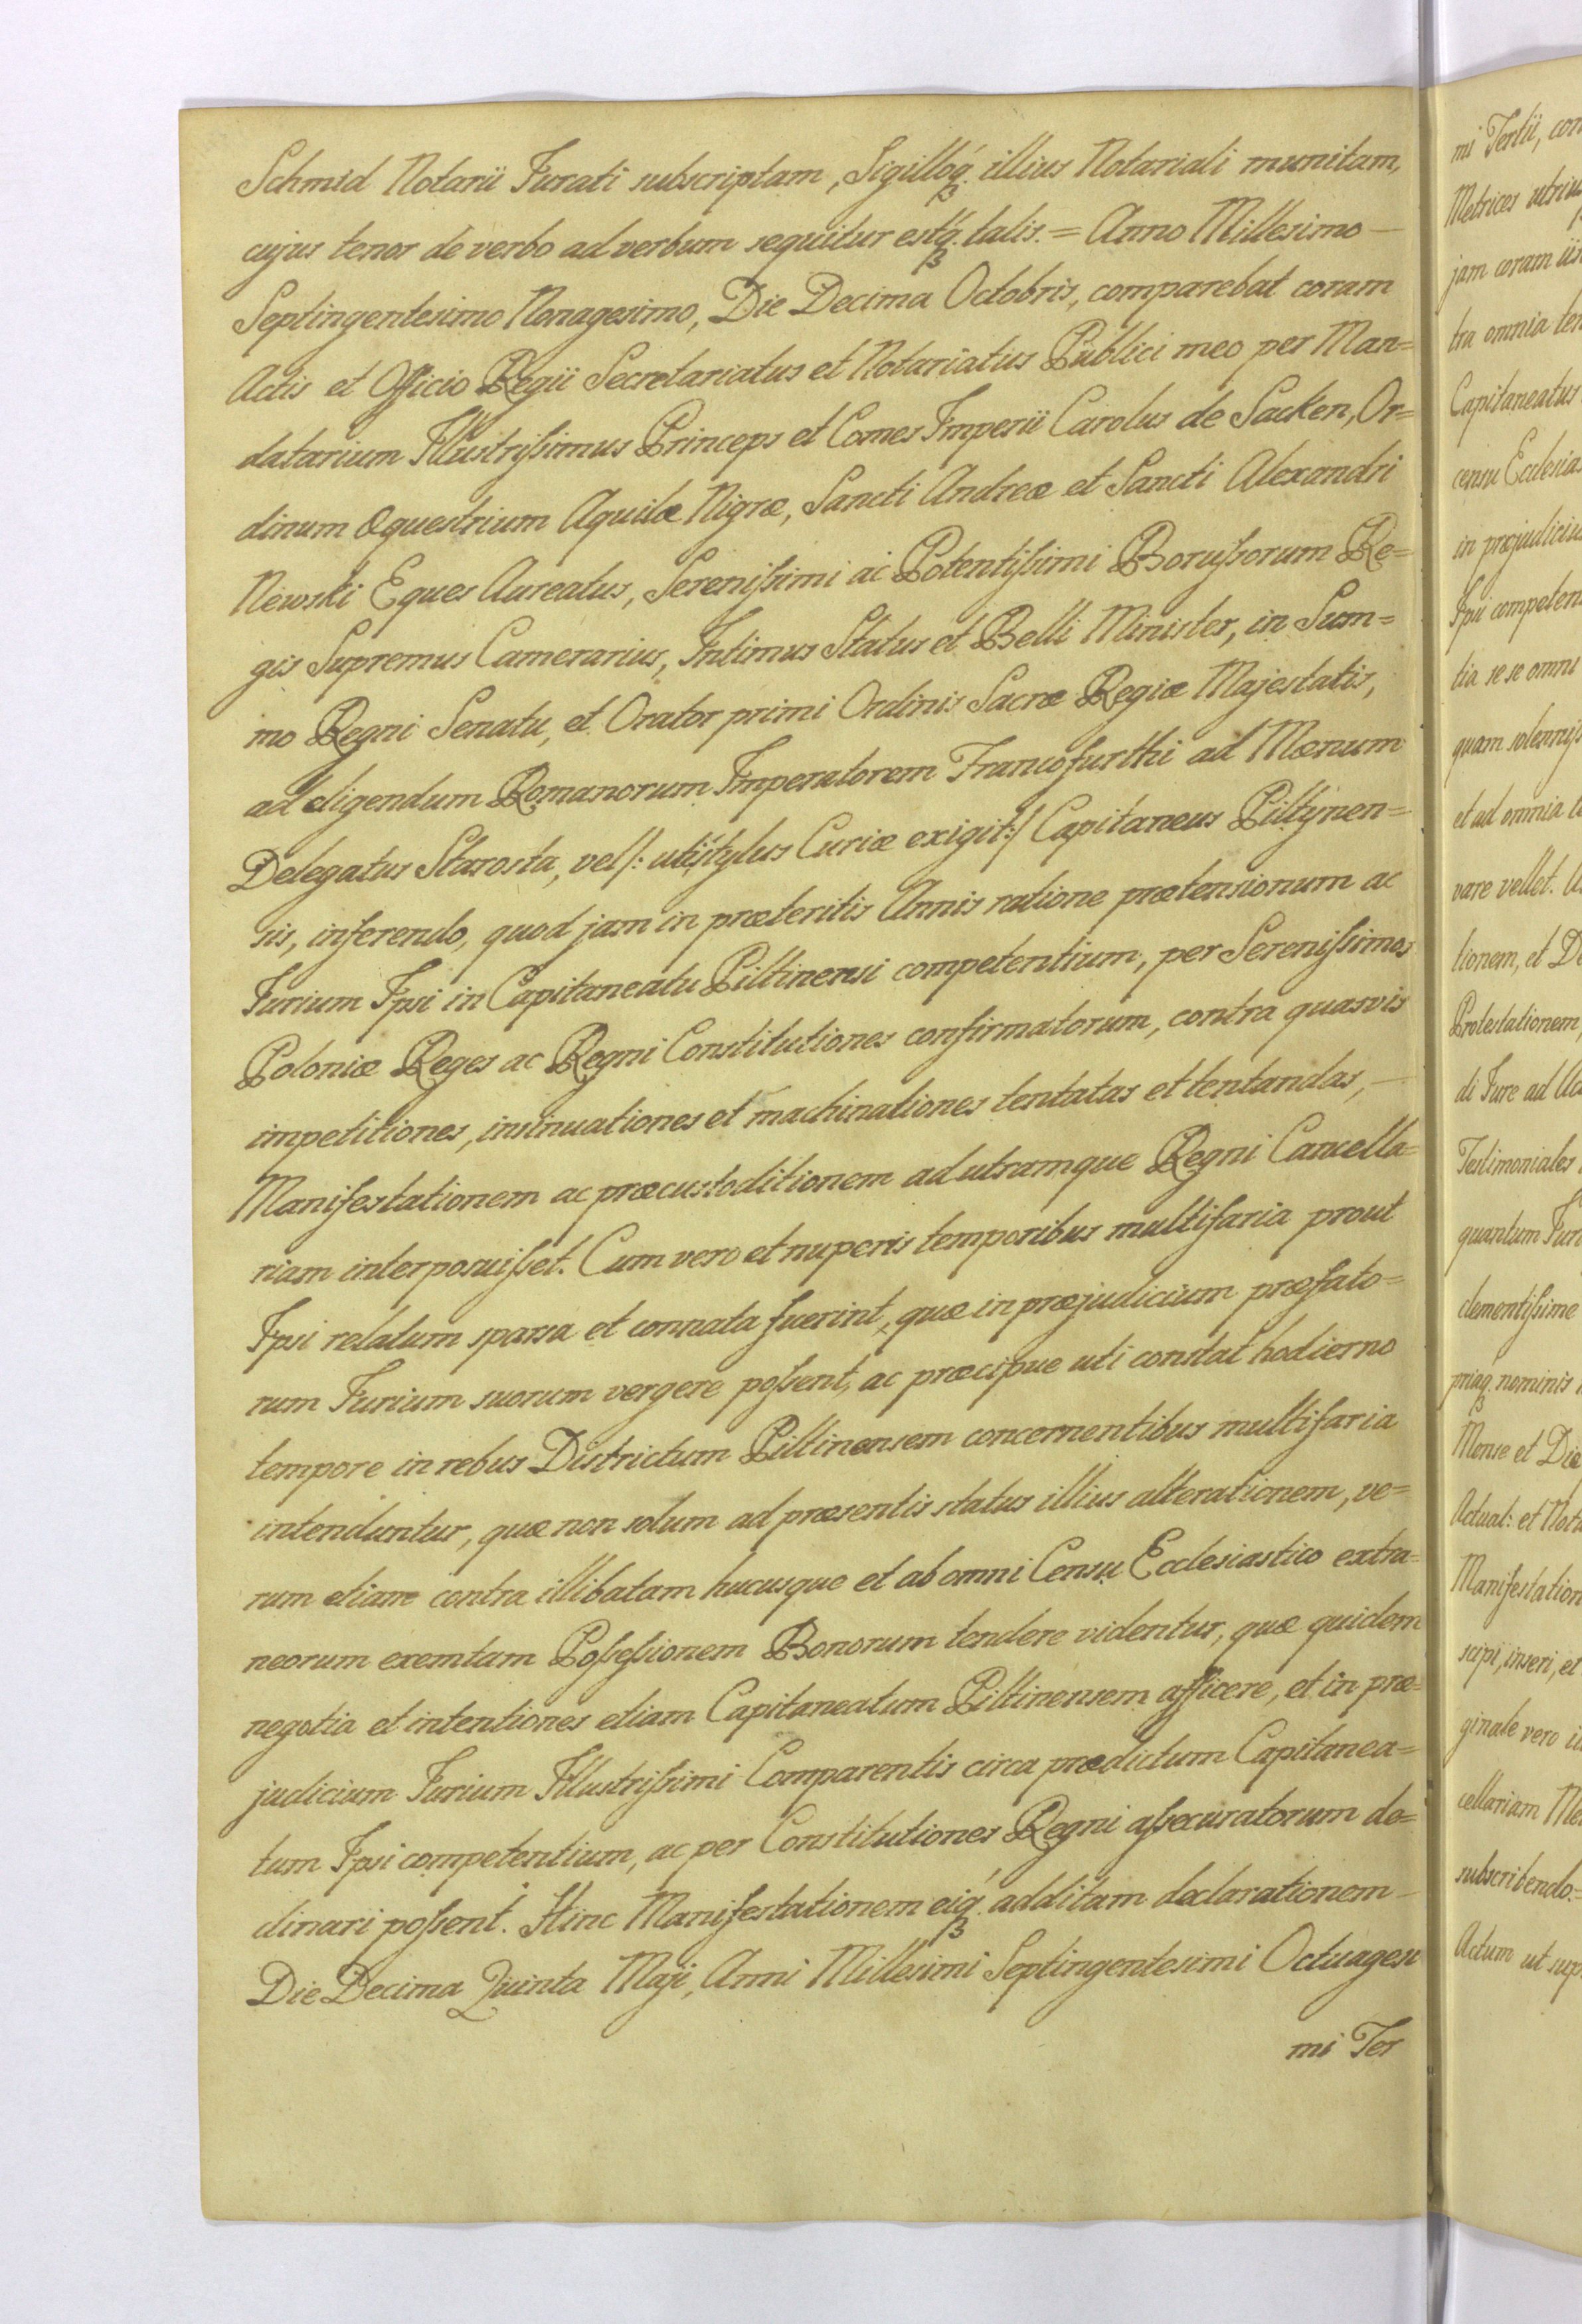 Schmid Notarii Jurati subscriptam, Sigilloq3 illius Notariali munitam,
cujus tenor de verbo ad verbum sequitur estq3 talis. = Anno Millesimo —
Septingentesimo Nonagesimo, Die Decima Octobris, comparebat coram
Actis et Officio Regii Secretariatus et Notariatus Publici meo per Man=
datarium Illustrissimus Princeps et Comes Imperii Carolus de Sacken, Or=
dinum Æquestrium Aquilæ Nigræ, Sancti Andreæ et Sancti Alexandri
Newski Eques Aureatus, Serenissimi ac Potentissimi Borussorum Re=
gis Supremus Camerarius, Intimus Status et Belli Minister, in Sum=
mo Regni Senatu, et Orator primi Ordinis Sacræ Regiæ Majestatis,
ad eligendum Romanorum Imperatorem Francofurthi ad Mœnum
Delegatus Starosta, vel /: uti stylus Curiæ exigit :/ Capitaneus Piltynen=
sis, inferendo, quod jam in præteritis Annis ratione prætensionum ac
Jurium Ipsi in Capitaneatu Piltinensi competentium, per Serenissimos
Poloniæ Reges ac Regni Constitutiones confirmatorum, contra quasvis
impetitiones, insinuationes et machinationes tentatas et tentandas, —
Manifestationem ac præcustoditionem ad utramque Regni Cancella=
riam interposuisset. Cum vero et nuperis temporibus multifaria prout
Ipsi relatum sparsa et connata fuerint, quæ in præjudicium præfato=
rum Jurium suorum vergere possent, ac præcipue uti constat hodierno
tempore in rebus Districtum Piltinensem concernentibus multifaria
intenduntur, quæ non solum ad præsentis status illius alterationem, ve=
rum etiam contra illibatam hucusque et ab omni Censu Ecclesiastico extra=
neorum exemtam Possessionem Bonorum tendere videntur, quæ quidem
negotia et intentiones etiam Capitaneatum Piltinensem afficere, et in præ=
judicium Jurium Illustrissimi Comparentis circa prædictum Capitanea=
tum Ipsi competentium, ac per Constitutiones Regni assecuratorum de=
dinari possent. Hinc Manifestationem eiq3 additam declarationem —
Die Decima Quinta Maji, Anni Millesimi Septingentesimi Octuagesi
mi Ter
mi Tertii, con
Metrices utriu
jam coram iis
tra omnia ten
Capitaneatus
censu Ecclesias
in præjudiciu
Ipsi competen
tia se se omni
quam solenniss
et ad omnia
vare vellet.
tionem, et De
Protestationem,
di Jure ad Ac
Testimoniales
quantum Juri
clementissime
priaq3 nominis
Mense et Die
Actual: et Nota
Manifestation
scipi, inseri, et
ginale vero
cellariam Me
subscribendo. =
Actum ut sup